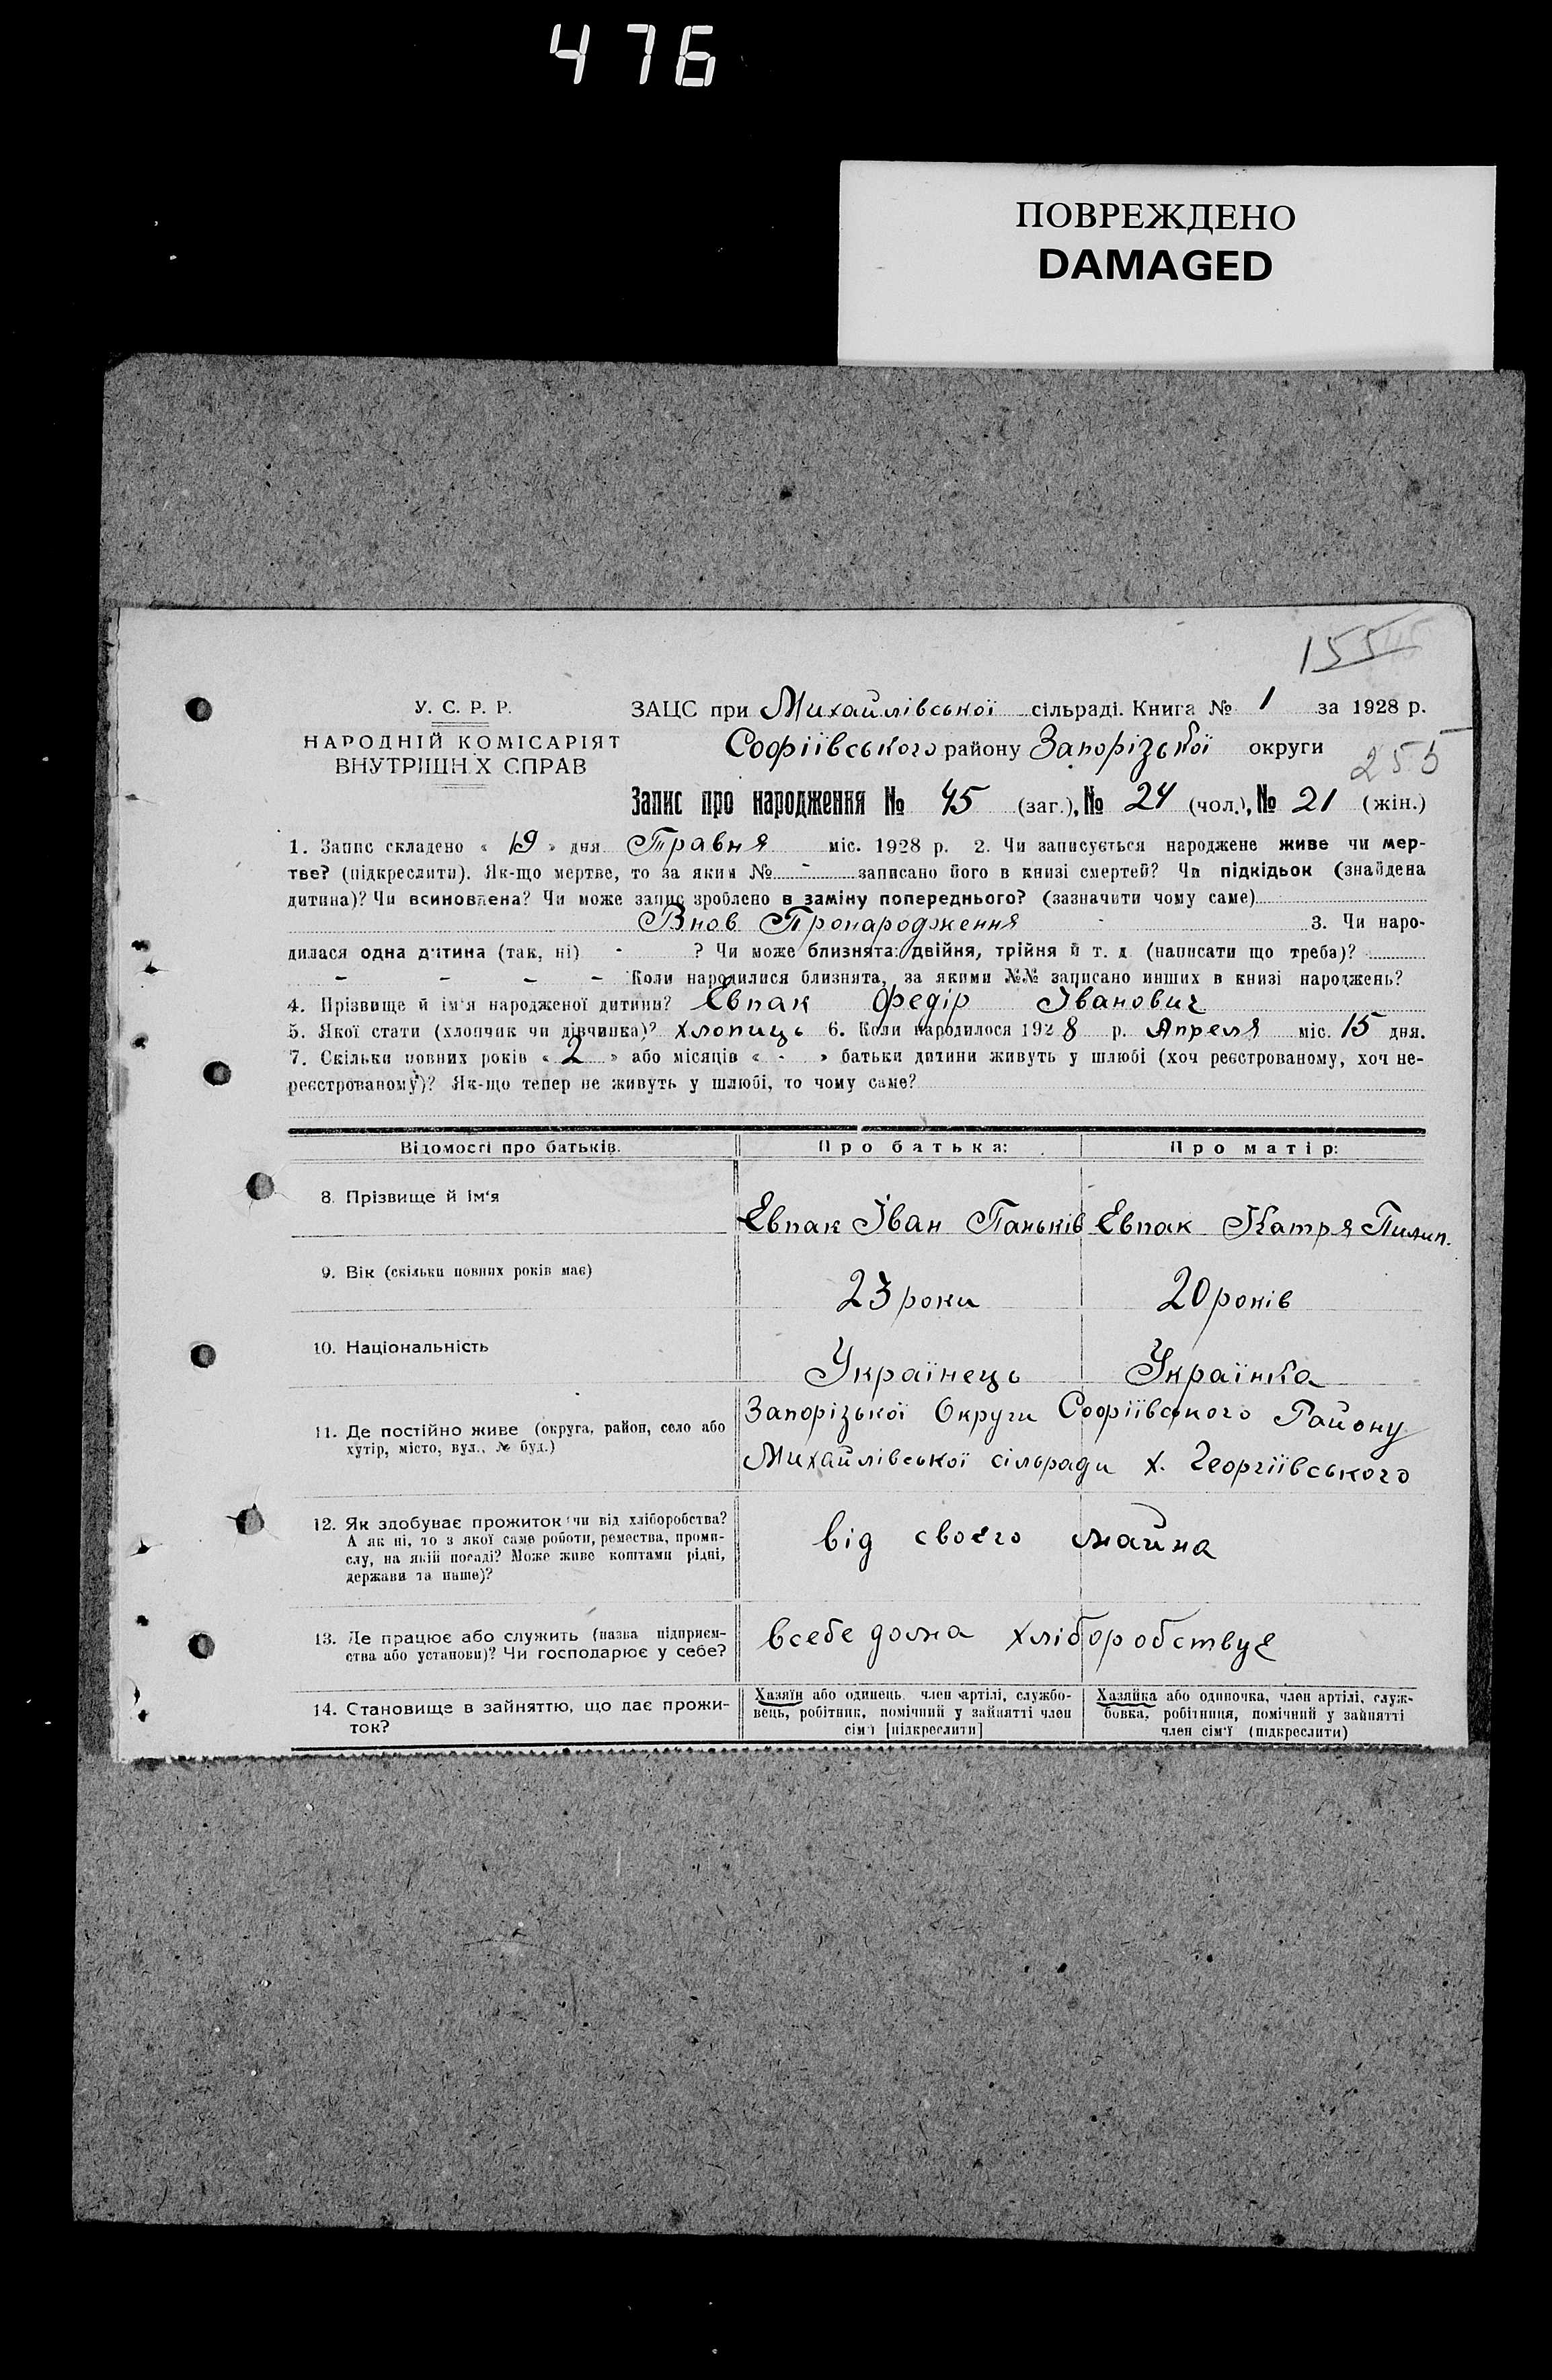 476
ПОВРЕЖДЕНО
DAMAGED
155
У. С. Р. Р.
НАРОДНІЙ КОМІСАРІЯТ
ВНУТРІШН Х СПРАВ
ЗАЦС при Михайлівської сільраді. Книга № 1 за 1928 р.
Софіївського району Запорізької округи
255
Запис про народження № 45 (заг.), № 24 (чол.), № 21 (жін.)
1. Запис складено « 19 » дня Травня міс. 1928 р. 2. Чи записується народжене живе чи мер-
тве? (підкреслити). Як-що мертве, то за яким № - записано його в книзі смертей? Чи підкідьок (знайдена
дитина)? Чи всиновлена? Чи може запис зроблено в заміну попереднього? (зазначити чому саме)
Внов Пронародження 3. Чи наро-
дилася одна дитина (так, ні) - ? Чи може близнята: двійня, трійня й т. д. (написати що треба)?
- - - - Коли народилися близнята, за якими №№ записано инших в книзі народжень?
4. Прізвище й ім'я народженої дитини? Евпак Федір Іванович
5. Якої стати (хлопчик чи дівчинка)? хлопиць 6. Коли народилося 1928 р. Апреля міс. 15 дня.
7. Скільки повних років « 2 » або місяців « - » батьки дитини живуть у шлюбі (хоч реєстрованому, хоч не-
реєстрованому)? Як-що тепер не живуть у шлюбі, то чому саме?
Відомості про батьків. Про батька: Про матір:
8. Прізвище й ім'я Евпак Іван Паньків Евпак Катря Пилип.
9. Вік (скільки повних років має) 23 роки 20 років
10. Національність Українець Українка
11. Де постійно живе (округа, район, село або
хутір, місто, вул., № буд.)
Запорізької Округи Софіївського Району
Михайлівської сільради х. Георгіївського
12. Як здобуває прожиток чи від хліборобства?
А як ні, то з якої саме роботи, ремества, проми-
слу, на якій посаді? Може живе коштами рідні,
держави та инше)?
від своего майна
13. Де працює або служить (назва підприєм-
ства або установи)? Чи господарює у себе?
всебе дома хліборобствує
14. Становище в зайняттю, що дає прожи-
ток?
Хазяїн або одинець, член артілі, службо-
вець, робітник, помічний у зайнятті член
сім'ї [підкреслити]
Хазяйка або одиночка, член артілі, служ-
бовка, робітниця, помічний у зайнятті
член сім'ї (підкреслити)